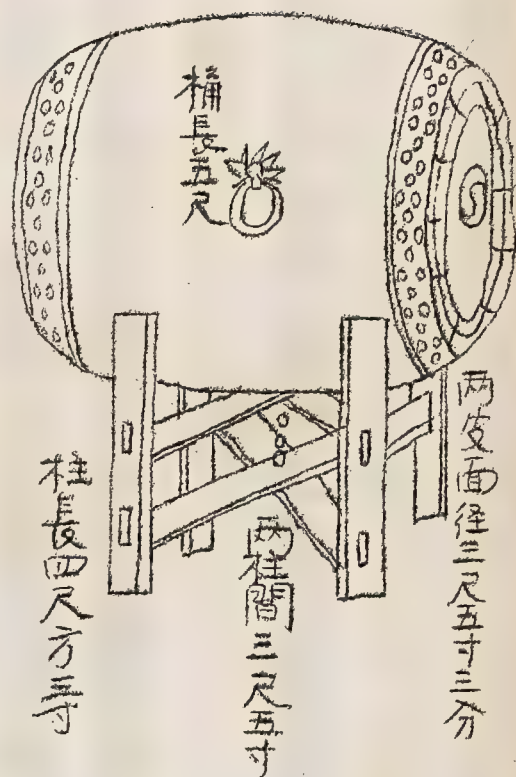 桶長五尺
両皮面径三尺五寸三分
両柱間三尺五寸
柱長四尺方三寸